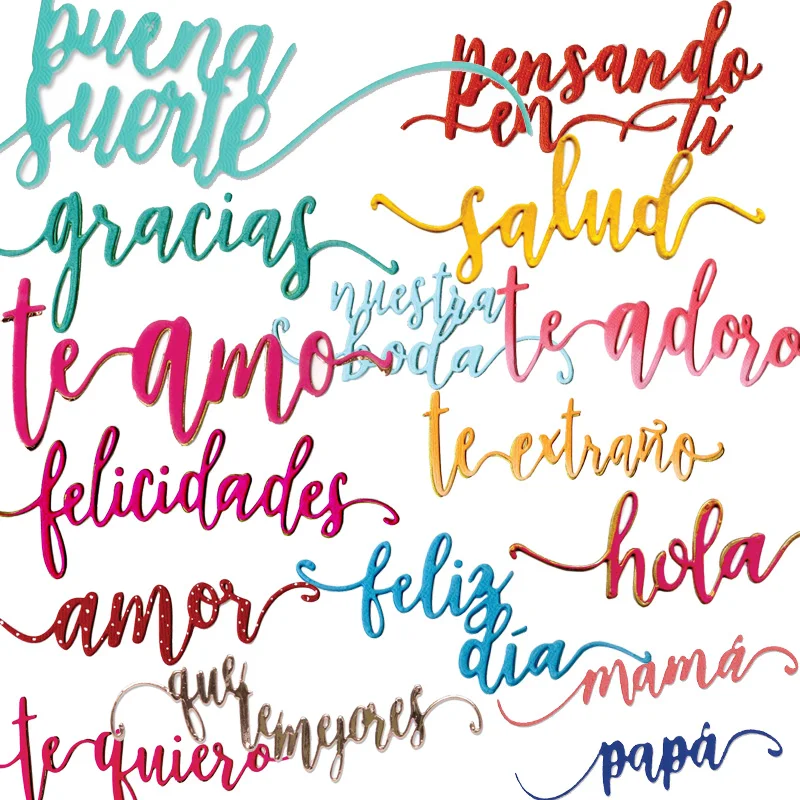 buena
suerte
pensando
en ti
gracias
salud
nuestra
boda
te adoro
te amo
te extraño
felicidades
hola
feliz
día
amor
mamá
que
te mejores
te quiero
papá